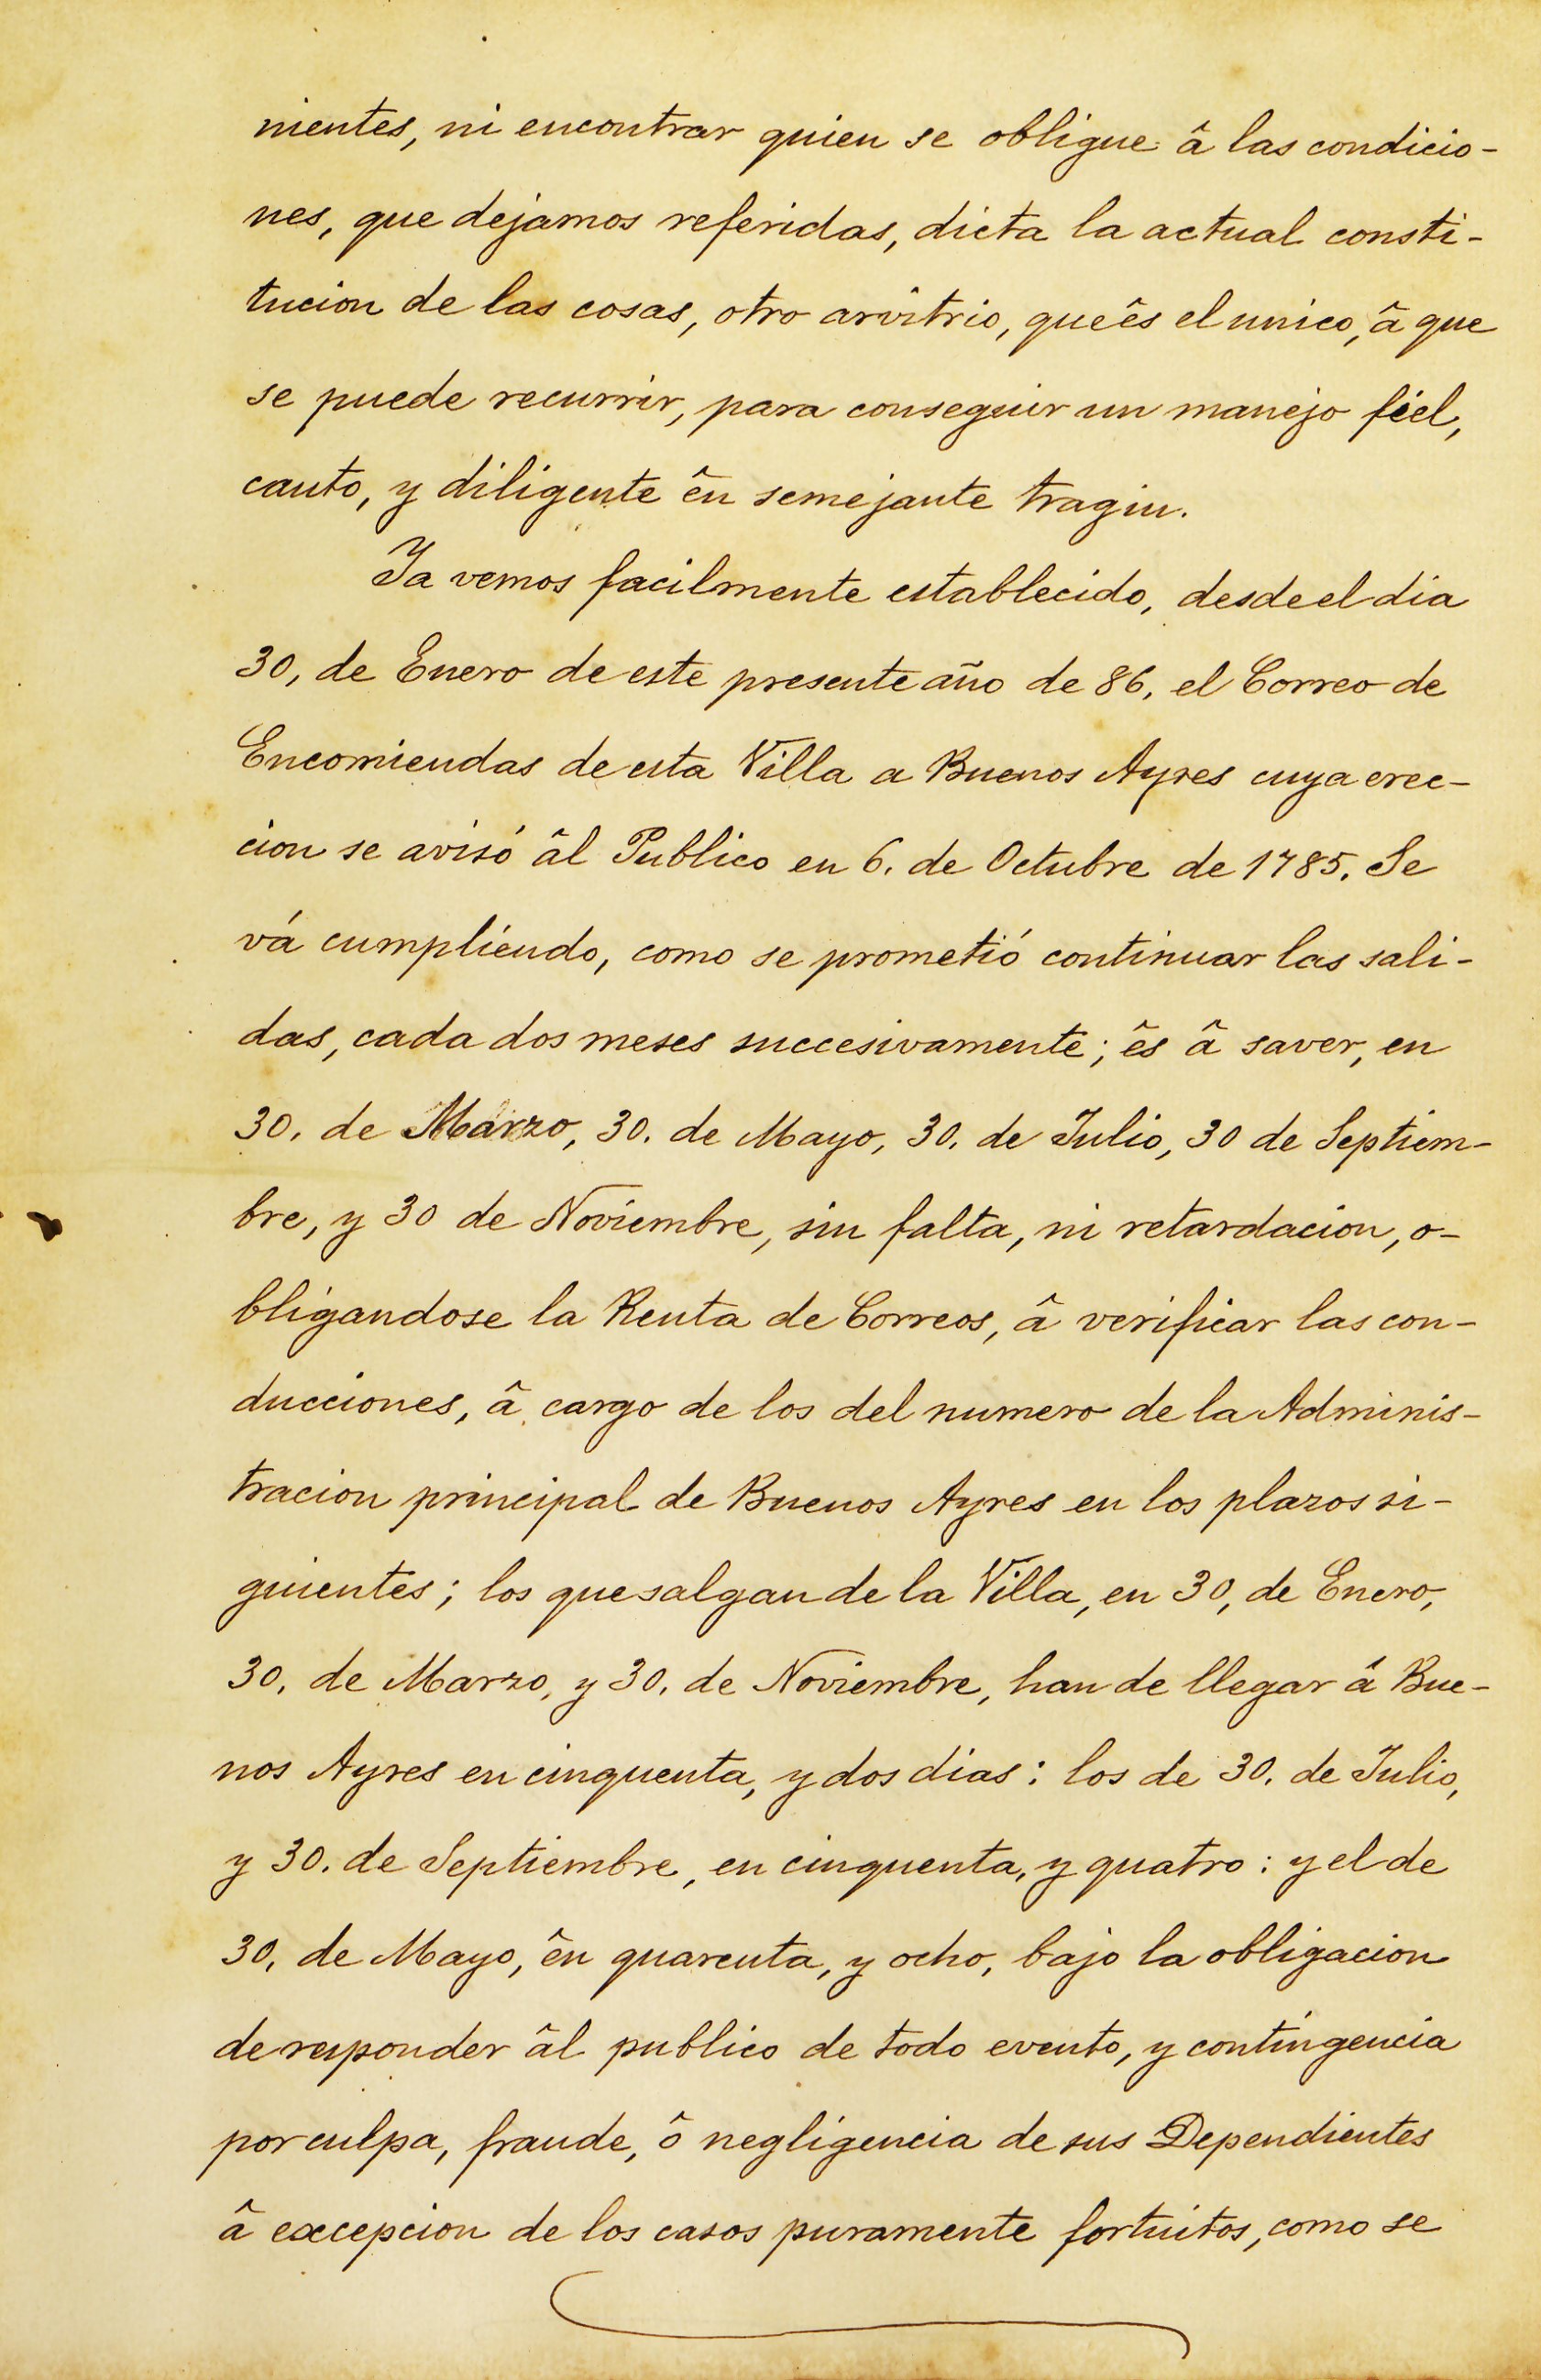 nientes, ni encontrar quien se obligue â las condicio-
nes, que dejamos referidas, dicta la actual consti-
tucion de las cosas, otro arvitrio, que ês el unico, â que
se puede recurrir, para conseguir un manejo fiel,
cauto, y diligente ên semejante tragin.
Ya vemos facilmente establecido, desde el dia
30, de Enero de este presente año de 86, el Correo de
Encomiendas de esta Villa a Buenos Ayres cuya erec-
cion se avisó âl Publico en 6. de Octubre de 1785. Se
vá cumpliendo, como se prometió continuar las sali-
das, cada dos meses succesivamente; ês â saver, en
30. de Marzo, 30. de Mayo, 30. de Julio, 30 de Septiem-
bre, y 30 de Noviembre, sin falta, ni retardacion, o-
bligandose la Renta de Correos, â verificar las con-
ducciones, â cargo de los del numero de la Adminis-
tracion principal de Buenos Ayres en los plazos si-
guientes; los que salgan de la Villa, en 30, de Enero,
30. de Marzo, y 30. de Noviembre, han de llegar â Bue-
nos Ayres en cinquenta, y dos dias: los de 30. de Julio,
y 30. de Septiembre, en cinquenta, y quatro: y el de
30, de Mayo, ên quarenta, y ocho, bajo la obligacion
de responder âl publico de todo evento, y contingencia
por culpa, fraude, ô negligencia de sus Dependientes
â excepcion de los casos puramente fortuitos, como se